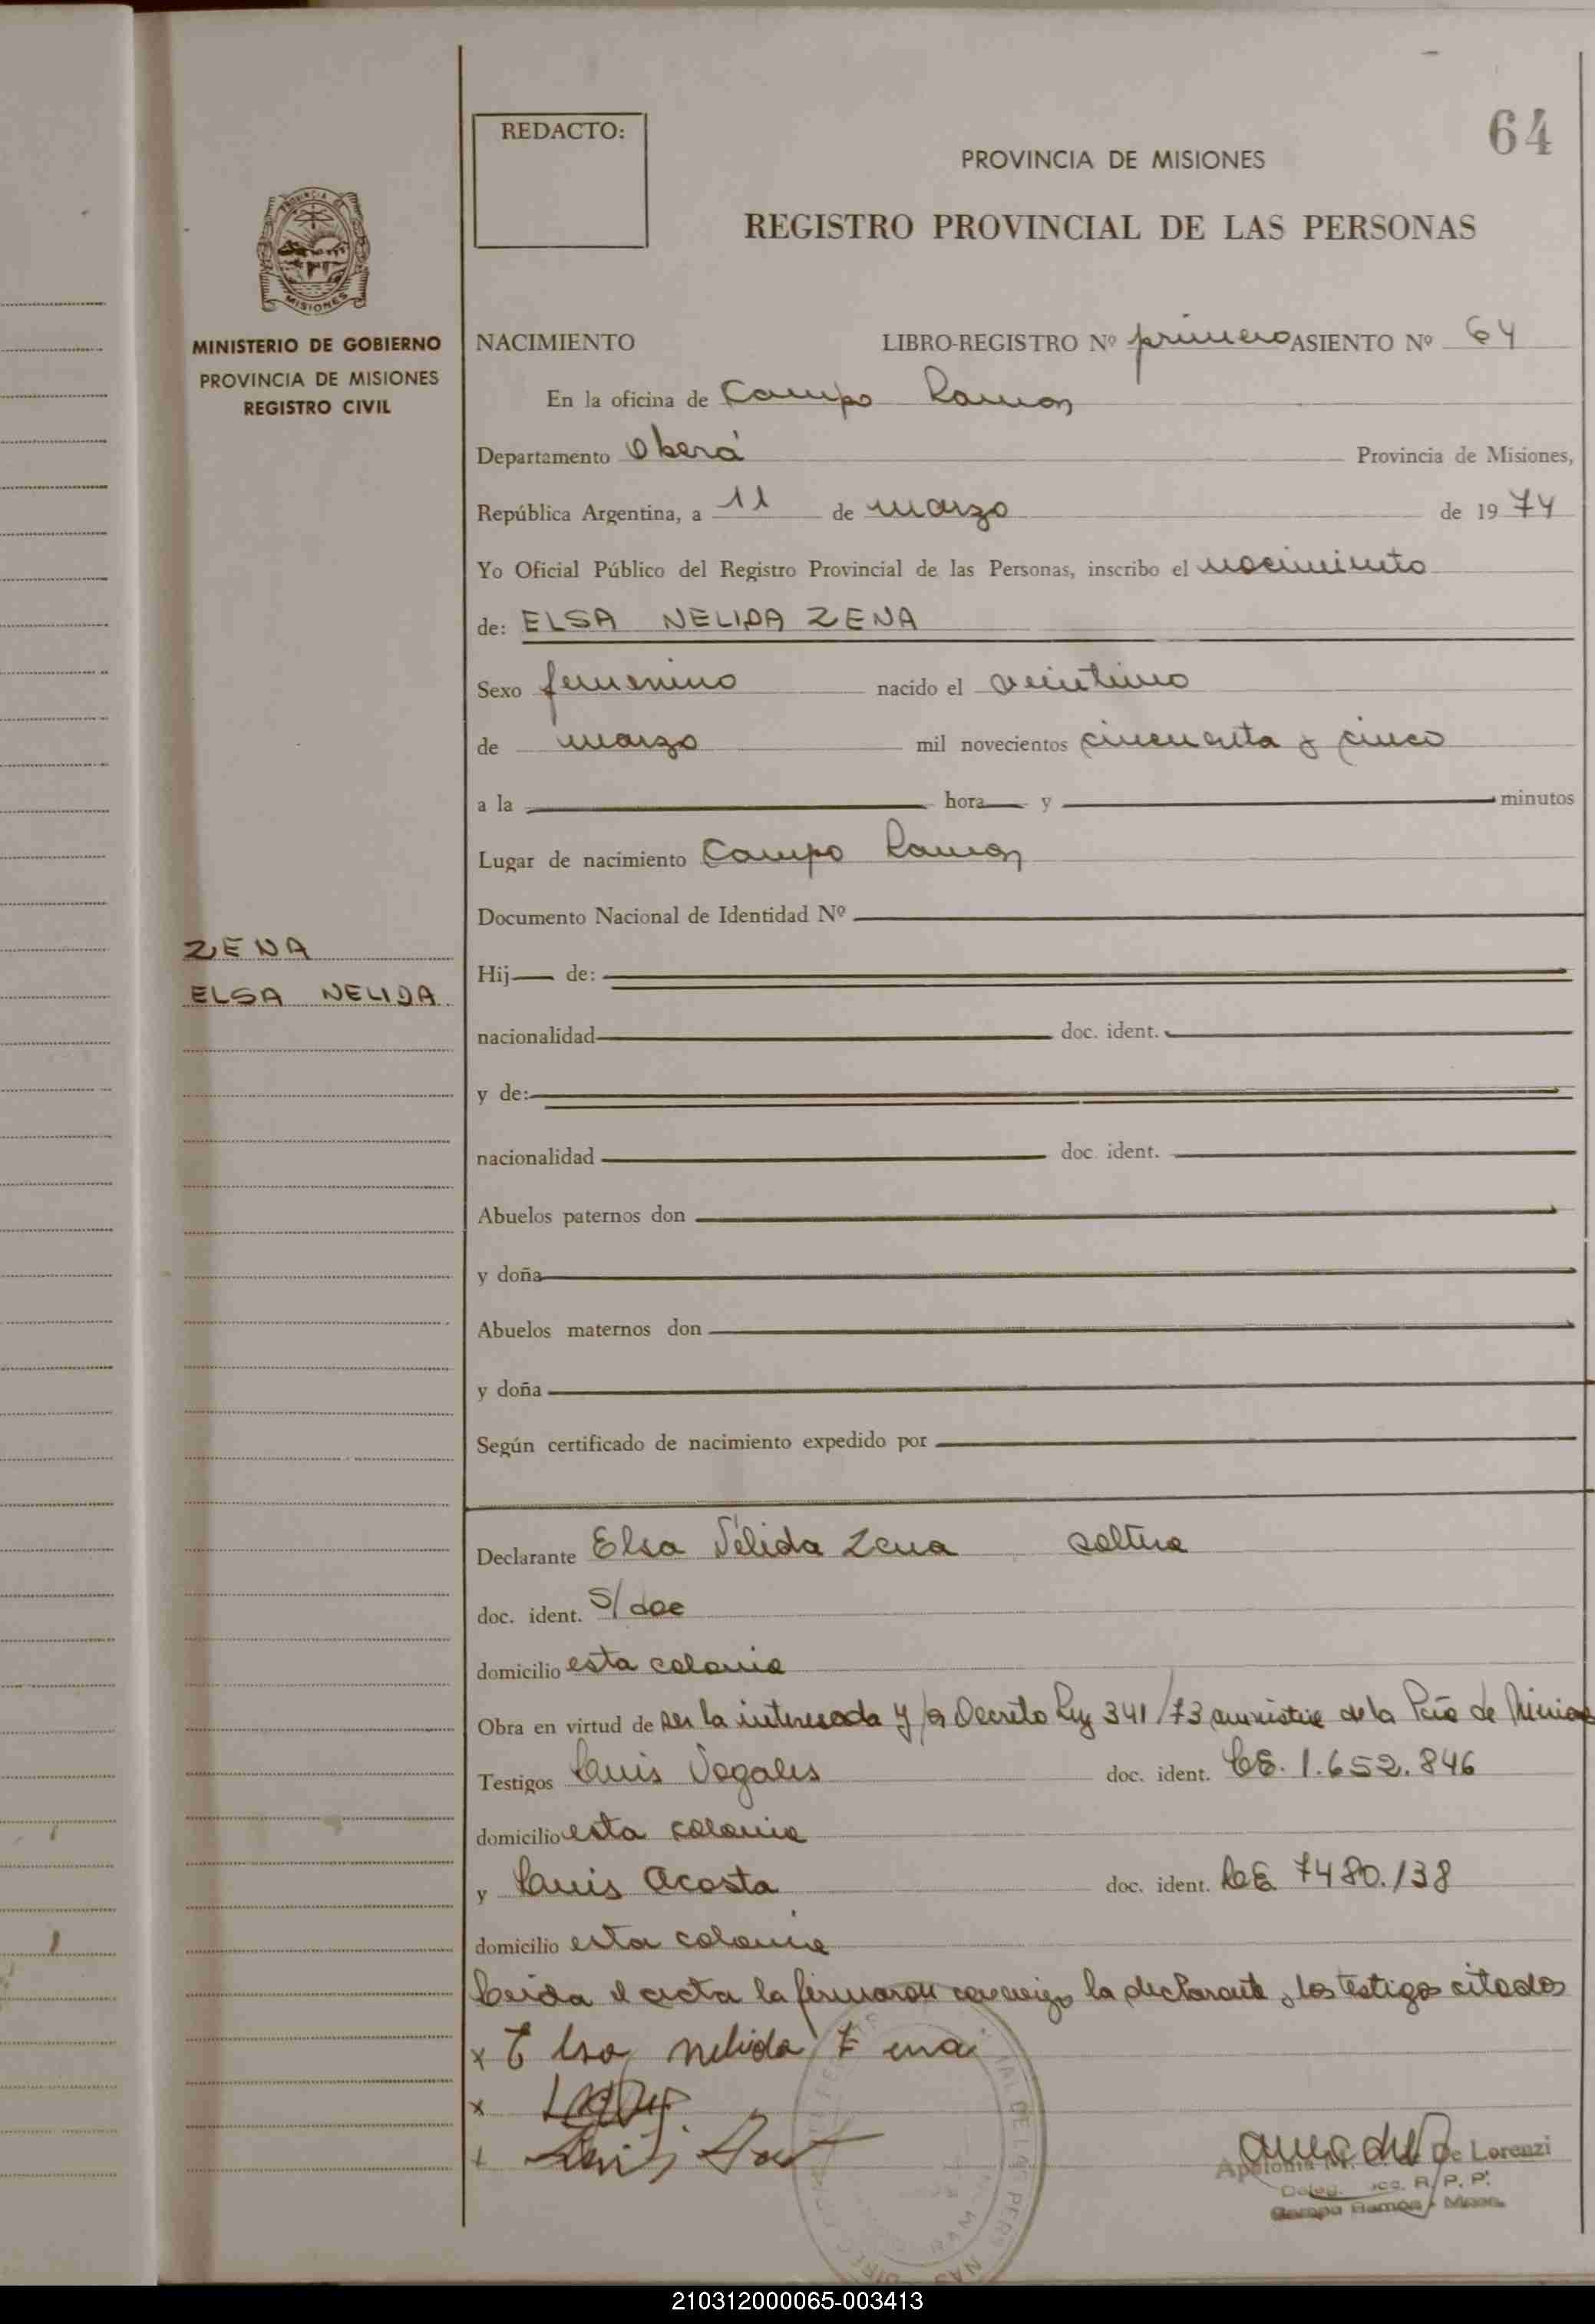 64
REDACTO:
PROVINCIA DE MISIONES
REGISTRO PROVINCIAL DE LAS PERSONAS
PROVINCIA DE
MISIONES
MINISTERIO DE GOBIERNO
PROVINCIA DE MISIONES
REGISTRO CIVIL
NACIMIENTO LIBRO-REGISTRO Nº primero ASIENTO Nº 64
En la oficina de Campo Ramon
Departamento Oberá Provincia de Misiones,
República Argentina, a 11 de marzo de 1974
Yo Oficial Público del Registro Provincial de las Personas, inscribo el nacimiento
de: ELSA NELIDA ZENA
Sexo femenino nacido el
de marzo mil novecientos cincuenta y cinco
a la hora y minutos
Lugar de nacimiento Campo Ramon
Documento Nacional de Identidad Nº
ZENA
ELSA NELIDA
Hij de:
nacionalidad doc. ident.
y de:
nacionalidad doc. ident.
Abuelos paternos don
y doña
Abuelos maternos don
y doña
Según certificado de nacimiento expedido por
Declarante Elsa Nélida Zena soltera
doc. ident. S/doc
domicilio esta colonia
Obra en virtud de ser la interesada y Decreto Ley 341/73 de la Pcia de Misiones
Testigos Luis doc. ident. LE. 1.652.846
domicilio esta colonia
y Luis Acosta doc. ident. LE 7480.138
domicilio esta colonia
Leida el acta la firmaron conmigo la declarante, los testigos citados
x Elsa nelida Zena
x
x Luis
De Lorenzi
R. P. P.
Campo Ramón - Mnes.
210312000065-003413